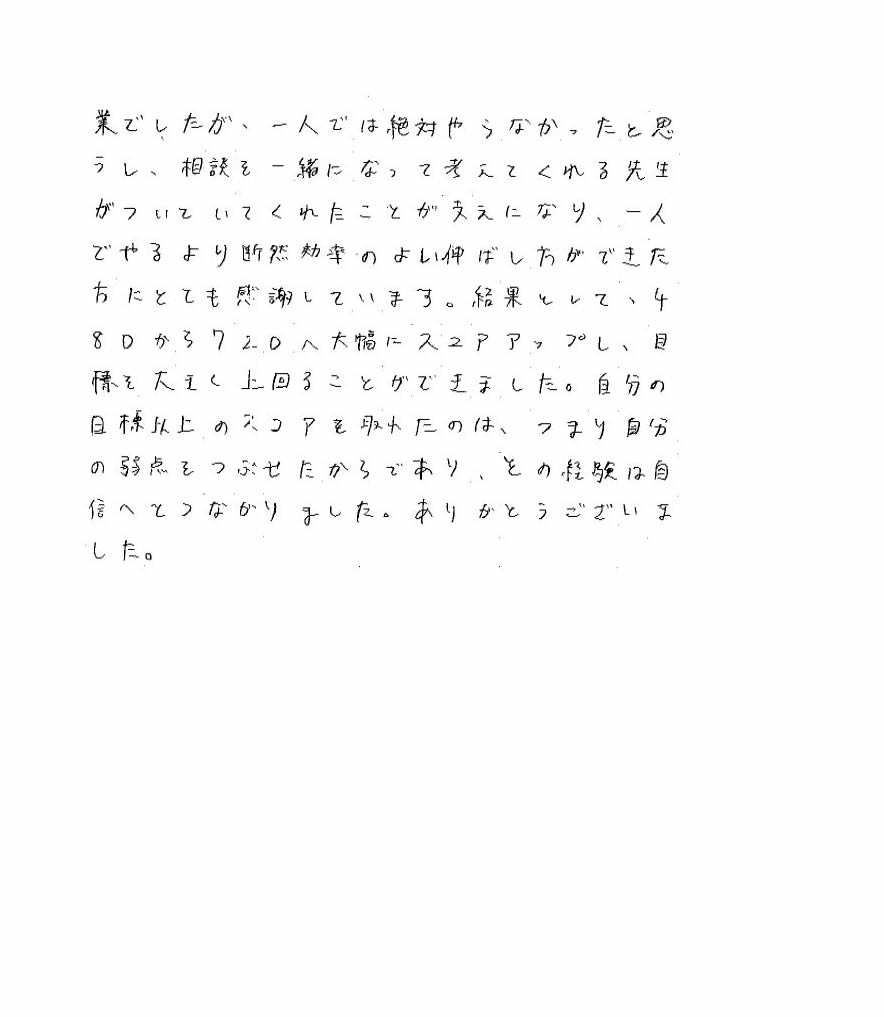 業でしたが、一人では絶対やらなかったと思
うし、相談を一緒になって考えてくれる先生
がついていてくれたことが支えになり、一人
でやるより断然効率のよい伸ばし方ができた
方にとても感謝しています。結果として、4
80から720へ大幅にスコアアップし、目
標を大きく上回ることができました。自分の
目標以上のスコアを取れたのは、つまり自分
の弱点をつぶせたからであり、その経験は自
信へとつながりました。ありがとうございま
した。